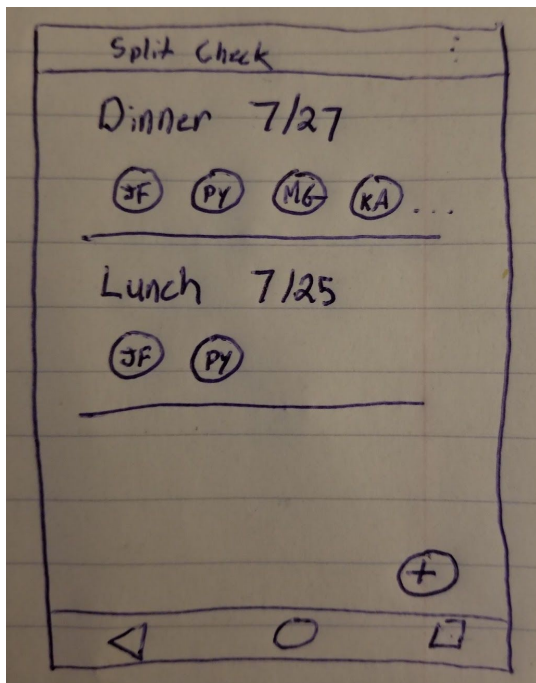 Split Check
Dinner 7/27
JF PY MG KA ...
Lunch 7/25
JF PY
+